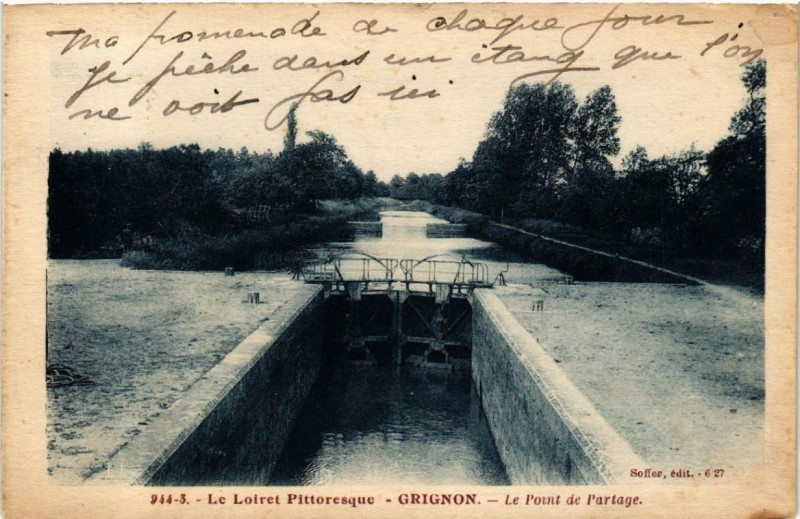 Ma promenade de chaque jour
je pêche dans un étang que l'on
ne voit pas ici
Soffer, édit. - 6 27
944-5. - Le Loiret Pittoresque - GRIGNON. - Le Point de Partage.